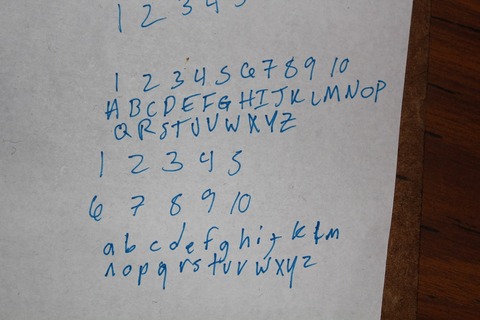 1 2 3 4 5
1 2 3 4 5 6 7 8 9 10
A B C D E F G H I J K L M N O P
Q R S T U V W X Y Z
1 2 3 4 5
6 7 8 9 10
a b c d e f g h i j k l m
n o p q r s t u v w x y z